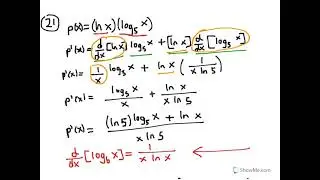 (21) p(x)=(ln x)(log₅ x)
p'(x)= d/dx [ln x] log₅ x + [ln x] d/dx [log₅ x]
p'(x)= 1/x log₅ x + ln x (1/(x ln 5))
p'(x)= log₅ x / x + ln x / (x ln 5)
p'(x)= ((ln 5) log₅ x + ln x) / (x ln 5)
d/dx [log_b x] = 1/(x ln x) ←
ShowMe.com